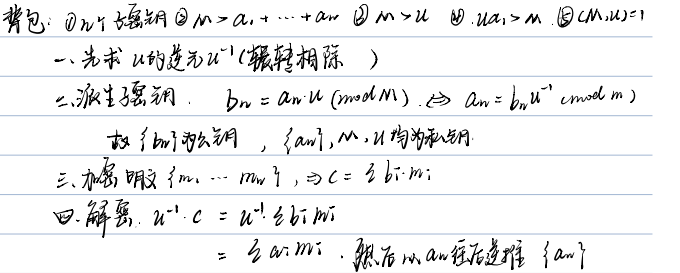 背包: ① n个子密钥 ② M > a₁ + ⋯ + aₙ ③ M > u ④ ua₁ > M ⑤ (M,u)=1
一、先求 u 的逆元 u⁻¹ (辗转相除 )
二、派生子密钥. bₙ = aₙ·u (mod M) ⇔ aₙ = bₙu⁻¹ (mod m)
故 {bₙ}为公钥 , {aₙ}, M, u 均为私钥.
三、加密 明文 {m₁ ⋯ mₙ}, ⇒ c = Σ bᵢ·mᵢ
四、解密. u⁻¹·c = u⁻¹·Σ bᵢmᵢ
= Σ aᵢmᵢ . 然后从 aₙ 往后逆推 {aₙ}